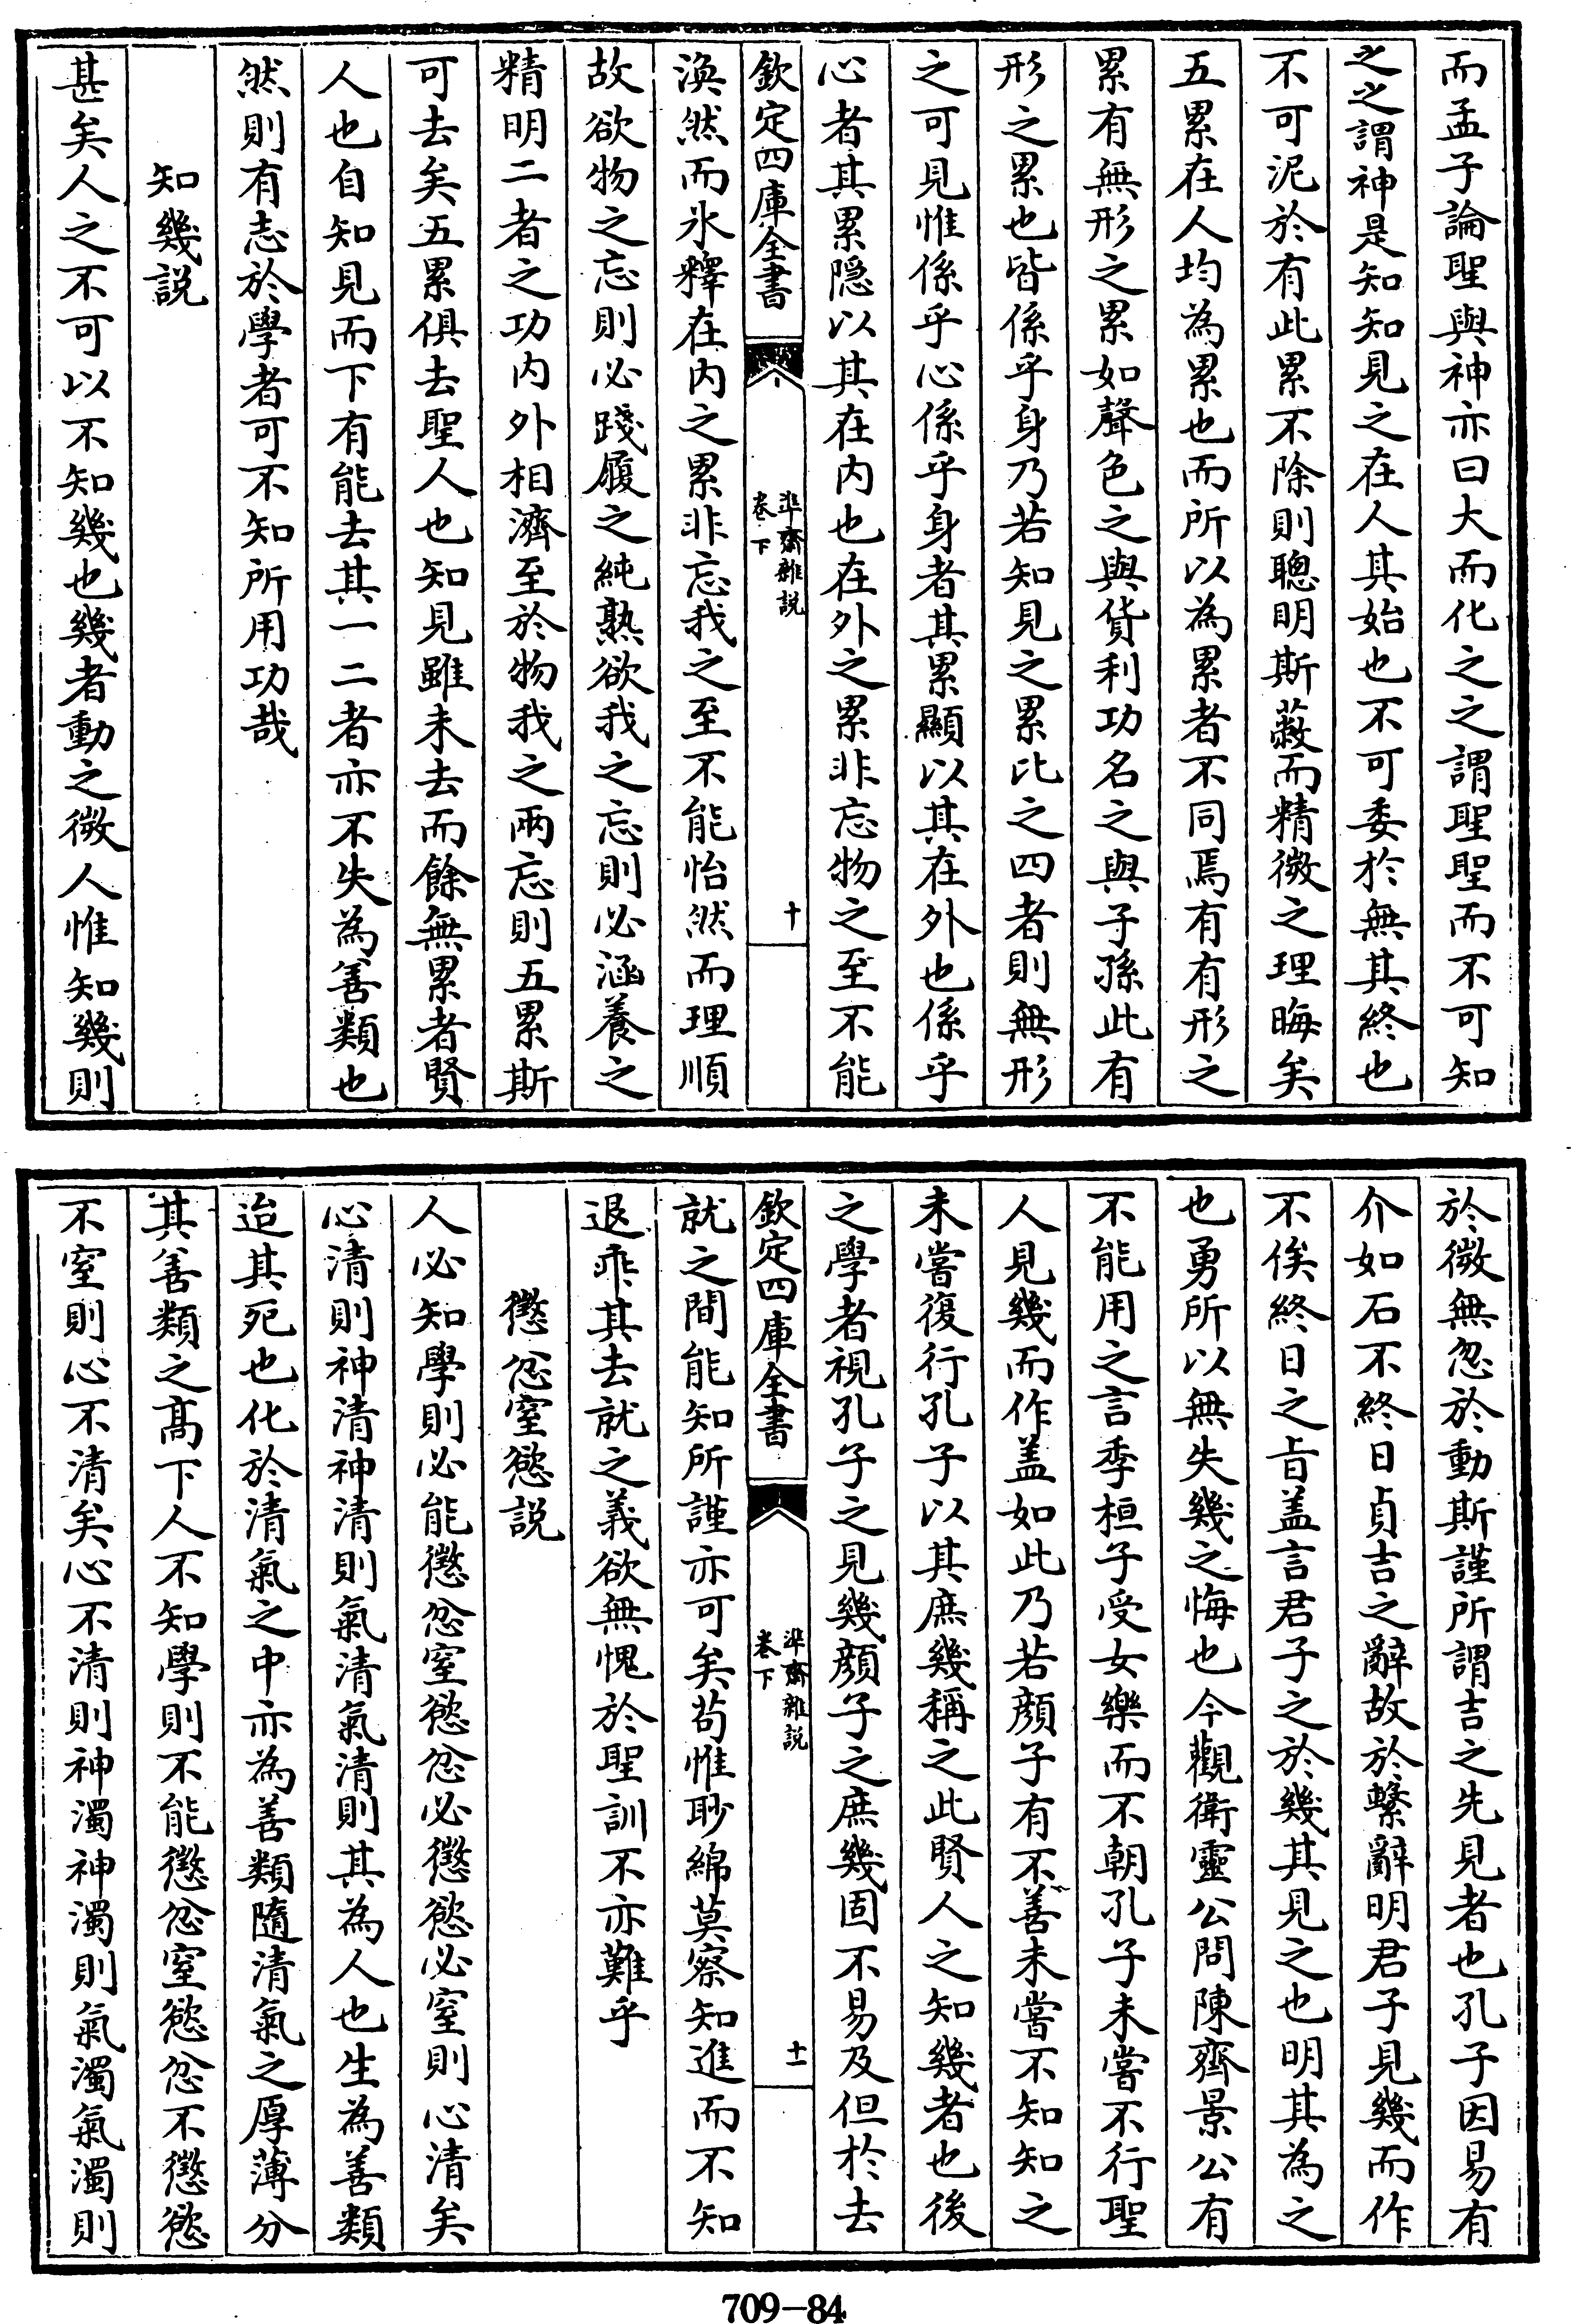 而孟子論聖與神亦曰大而化之之謂聖聖而不可知
之之謂神是知知見之在人其始也不可委於無其終也
不可泥於有此累不除則聰明斯蔽而精微之理晦矣
五累在人均為累也而所以為累者不同焉有有形之
累有無形之累如聲色之與貨利功名之與子孫此有
形之累也皆係乎身乃若知見之累比之四者則無形
之可見惟係乎心係乎身者其累顯以其在外也係乎
心者其累隠以其在内也在外之累非忘物之至不能
欽定四庫全書
準齋雜説
卷下
十
渙然而氷釋在内之累非忘我之至不能怡然而理順
故欲物之忘則必踐履之純熟欲我之忘則必涵養之
精明二者之功内外相濟至於物我之兩忘則五累斯
可去矣五累俱去聖人也知見雖未去而餘無累者賢
人也自知見而下有能去其一二者亦不失為善類也
然則有志於學者可不知所用功哉
知幾説
甚矣人之不可以不知幾也幾者動之微人惟知幾則
於微無忽於動斯謹所謂吉之先見者也孔子因易有
介如石不終日貞吉之辭故於繫辭明君子見幾而作
不俟終日之㫖盖言君子之於幾其見之也明其為之
也勇所以無失幾之悔也今觀衛靈公問陳齊景公有
不能用之言季桓子受女樂而不朝孔子未嘗不行聖
人見幾而作盖如此乃若顔子有不善未嘗不知知之
未嘗復行孔子以其庶幾稱之此賢人之知幾者也後
之學者視孔子之見幾顔子之庶幾固不易及但於去
欽定四庫全書
準齋雜説
卷下
十一
就之間能知所謹亦可矣苟惟眇綿莫察知進而不知
退乖其去就之義欲無愧於聖訓不亦難乎
懲忿窒慾説
人必知學則必能懲忿窒慾忿必懲慾必窒則心清矣
心清則神清神清則氣清氣清則其為人也生為善類
迨其死也化於清氣之中亦為善類隨清氣之厚薄分
其善類之髙下人不知學則不能懲忿窒慾忿不懲慾
不窒則心不清矣心不清則神濁神濁則氣濁氣濁則
709-84